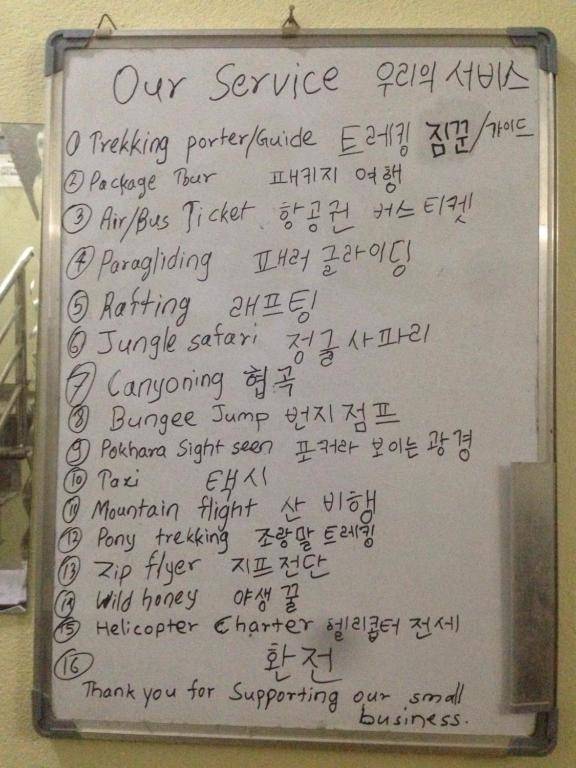 Our Service 우리의 서비스
① Trekking porter/Guide 트레킹 짐꾼/가이드
② Package Tour 패키지 여행
③ Air/Bus Ticket 항공권 버스 티켓
④ Paragliding 패러 글라이딩
⑤ Rafting 래프팅
⑥ Jungle safari 정글 사파리
⑦ Canyoning 협곡
⑧ Bungee Jump 번지 점프
⑨ Pokhara Sight seen 포커라 보이는 광경
⑩ Taxi 택시
⑪ Mountain flight 산 비행
⑫ Pony trekking 조랑말 트레킹
⑬ Zip flyer 지프 전단
⑭ Wild honey 야생 꿀
⑮ Helicopter Charter 헬리콥터 전세
⑯ 환전
Thank you for Supporting our small
business.